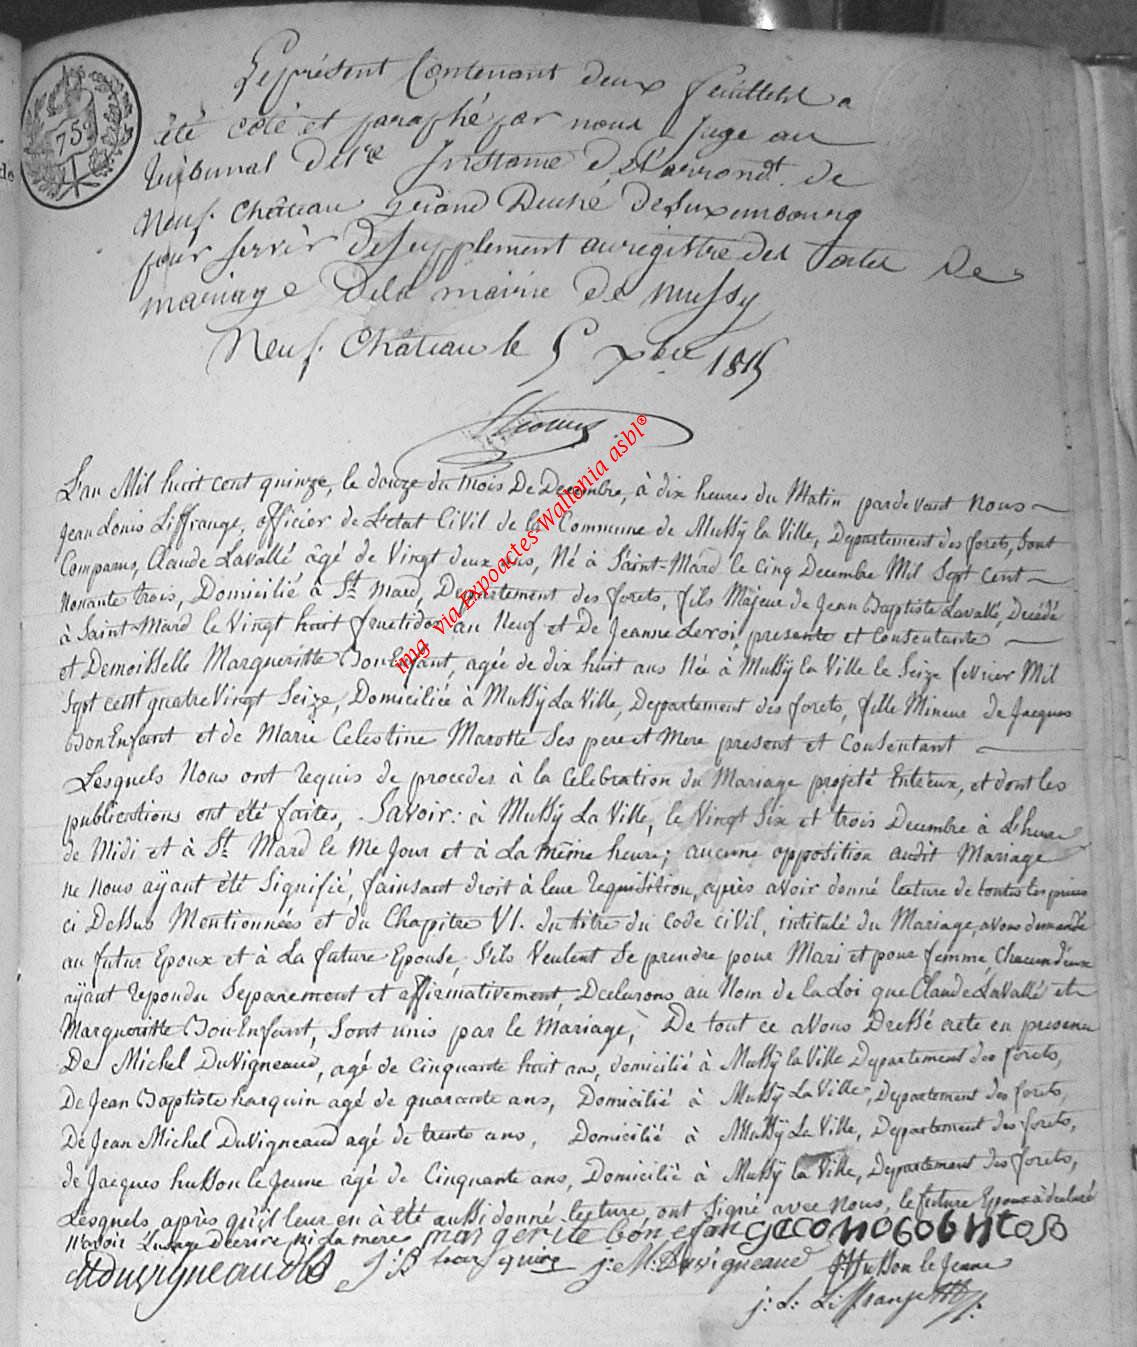 75c
Le présent Contenant deux feuillets a
été coté et paraphé par nous Juge au
Tribunal de 1re Instance de L'arrondt. de
Neuf. Château Grand Duché de Luxembourg
pour servir de supplement au registre des actes de
mariage de la mairie de Mussy
Neuf. Château le 5 xbre 1815
L'an Mil huit cent quinze, le douze du Mois De Decembre, à dix heures du Matin pardevant Nous
Jean Louis Liffrange, officier de L'etat Civil de la Commune de Mussÿ la Ville, Departement des forets, Sont
Comparus, Claude Lavallé âgé de Vingt deux ans, Né à Saint-Mard le Cinq Decembre Mil Sept Cent
Nonante trois, Domicilié à St. Mard, Departement des forets, fils Majeur de Jean Baptiste Lavallé, Décédé
à Saint-Mard le Vingt huit fructidor an Neuf et De Jeanne Leroi presente et Consentante
et Demoiselle Margueritte Bon Enfant, agée de dix huit ans Née à Mussÿ la Ville le Seize fevrier Mil
Sept cent quatre Vingt Seize, Domiciliée à Mussÿ La Ville, Departement des forets, fille Mineure de Jacques
Bon Enfant et de Marie Celestine Marotte Ses pere et Mere present et Consentant
Lesquels Nous ont requis de proceder à la Celebration du Mariage projeté Entreeux, et dont les
publications ont été faites, Savoir: à Mussÿ La Ville, le Vingt Six et trois Decembre à L'heure
de Midi et à St. Mard le Me Jour et à La même heure; aucune opposition audit Mariage
ne Nous aÿant été Signifié, faisant droit à leur requisition, après avoir donné lecture de toutes les pieces
ci Dessus Mentionnées et du Chapitre VI. du titre du Code Civil, intitulé du Mariage, avons demandé
au futur Epoux et à La future Epouse, S'ils Veulent Se prendre pour Mari et pour femme, Chacun d'eux
aÿant repondu Separement et affirmativement, Declarons au Nom de la Loi que Claude Lavallé et
Margueritte Bon Enfant, Sont unis par le Mariage, De tout ce avons Dressé acte en presence
De Michel Duvigneaud, agé de Cinquante huit ans, domicilié à Mussÿ la Ville Departement des forets,
De Jean Baptiste harquin agé de quarante ans, Domicilié à Mussÿ La Ville, Departement des forets,
De Jean Michel Duvigneaud agé de trente ans, Domicilié à Mussÿ La Ville, Departement des forets,
de Jacques husson le Jeune agé de Cinquante ans, Domicilié à Mussÿ la Ville, Departement des forets,
Lesquels, après qu'il leur en à été aussi donné lecture, ont Signé avec Nous, le future Epoux à declaré
N'avoir L'usage D'ecrire ni La mere margerite bon efan
Mduvigneaud J: B harquin j: M: Duvigneaud JHusson le Jeune
j: L: Liffrange
img via Expoactes-Wallonia asbl®